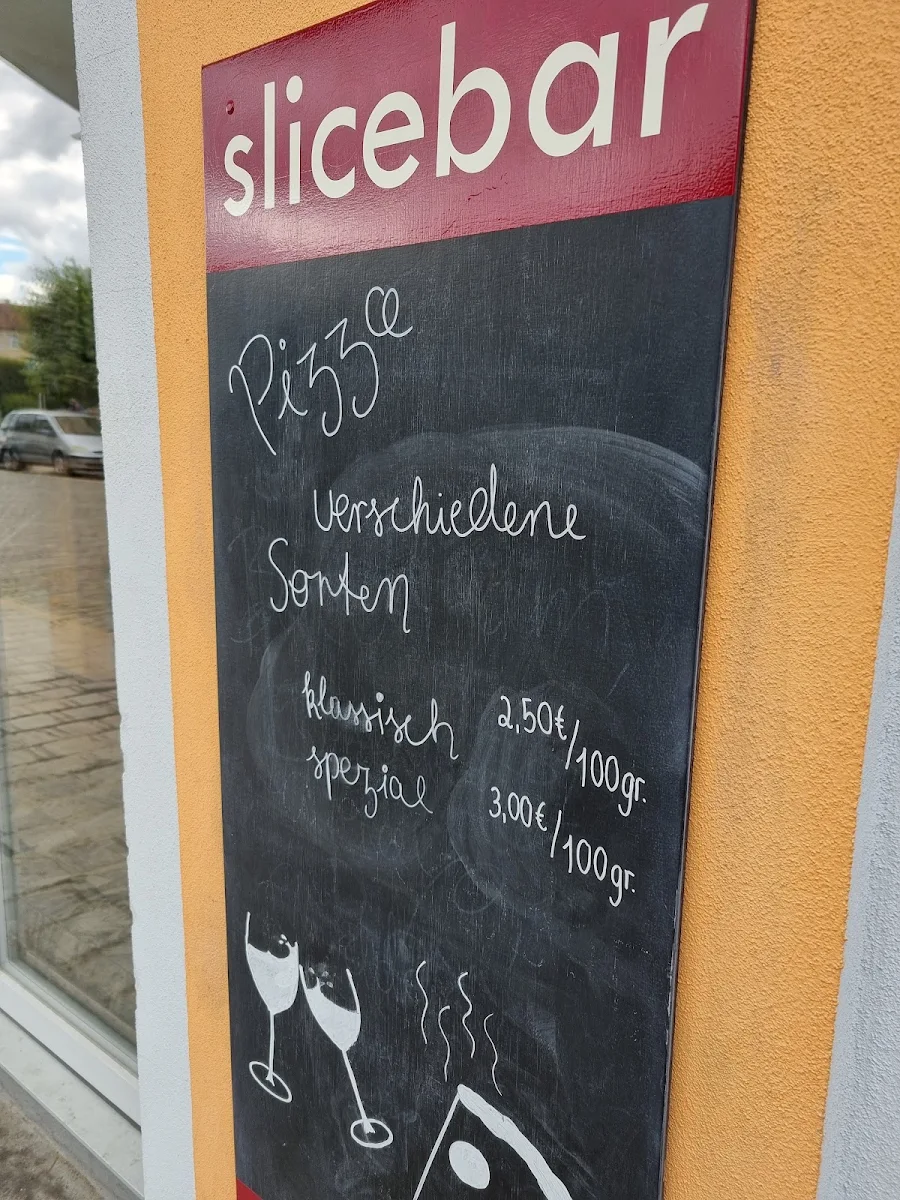 slicebar
Pizza
verschiedene
Sorten
klassisch 2,50€/100gr.
spezial 3,00€/100gr.